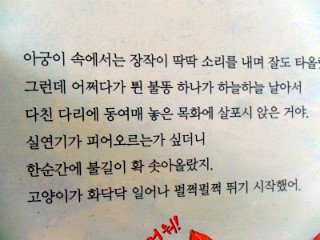 아궁이 속에서는 장작이 딱딱 소리를 내며 잘도
그런데 어쩌다가 튄 불똥 하나가 하늘하늘 날아서
다친 다리에 동여매 놓은 목화에 살포시 앉은 거야.
실연기가 피어오르는가 싶더니
한순간에 불길이 확 솟아올랐지.
고양이가 화닥닥 일어나 펄쩍펄쩍 뛰기 시작했어.